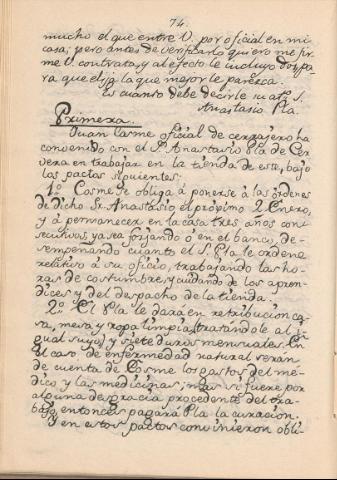 74.
mucho el que entre V. por oficial en mi
casa; pero antes de verificarlo quiero me fir-
me V. contrata, y al efecto le incluyo dos pa-
ra que elija la que mejor le parezca.
Es cuanto debe decirle su atº. S.
Anastasio Pla.
Primera.
Juan Cosme oficial de cerrajero ha
convenido con el Sr. Anastasio Pla de Cer-
vera en trabajar en la tienda de este, bajo
los pactos siguientes:
1º. Cosme se obliga á ponerse á las órdenes
de dicho Sr. Anastasio el próximo 2 Enero,
y á permanecer en la casa tres años con-
secutivos, ya sea forjando ó en el banco, de-
sempeñando cuanto el S. Pla le ordene
relativo á su oficio, trabajando las ho-
ras de costumbre, y cuidando de los apren-
dices y del despacho de la tienda.
2º. El Pla le dará en retribucion ca-
sa, mesa y ropa limpia, tratandole al i-
gual suyo, y siete duros mensuales. En
el caso de enfermedad natural serán
de cuenta de Cosme los gastos del mé-
dico y las medicinas; mas si fuere por
alguna desgracia procedente del tra-
bajo, entonces pagará Pla la curacion.
Y en estos pactos convinieron obli-